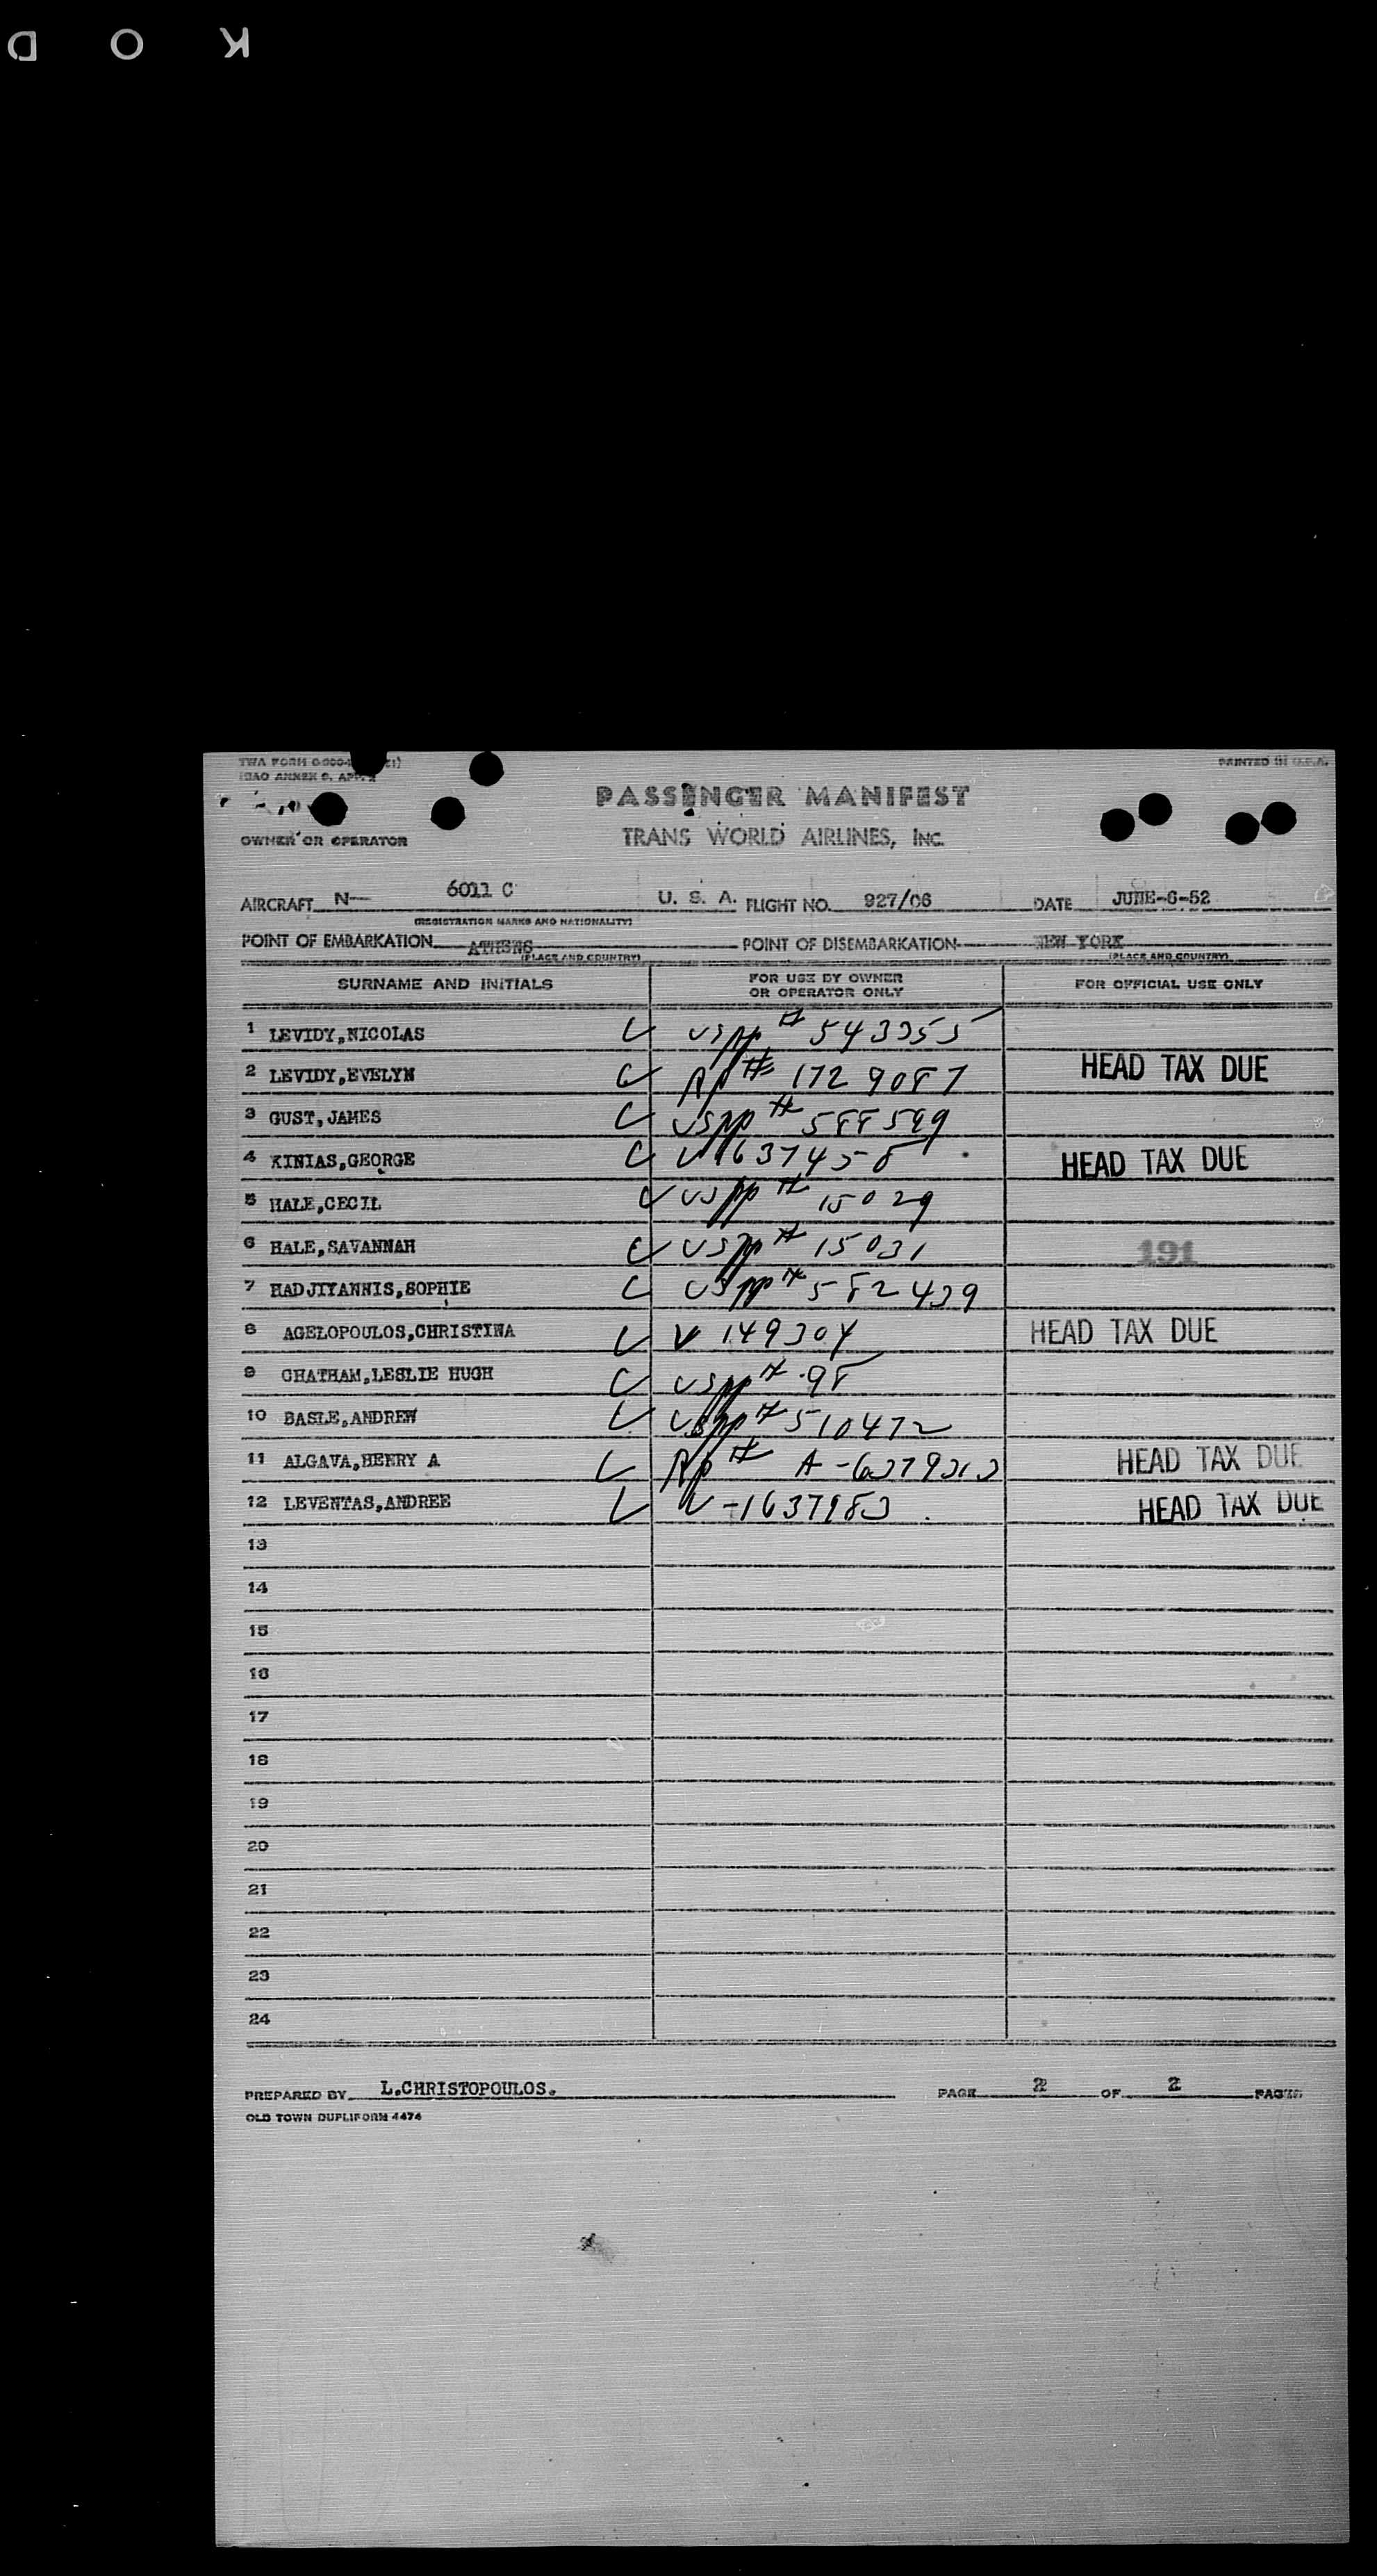 K O D
PRINTED IN U.S.A.
ICAO ANNEX 9, APP. 2
PASSENGER MANIFEST
OWNER OR OPERATOR
TRANS WORLD AIRLINES, INC.
AIRCRAFT N— 6011 C U. S. A. FLIGHT NO. 927/06 DATE JUNE-6-52
(REGISTRATION MARKS AND NATIONALITY)
POINT OF EMBARKATION ATHENS POINT OF DISEMBARKATION NEW YORK
(PLACE AND COUNTRY) (PLACE AND COUNTRY)
SURNAME AND INITIALS FOR USE BY OWNER OR OPERATOR ONLY FOR OFFICIAL USE ONLY
1 LEVIDY,NICOLAS USPP # 543355
2 LEVIDY,EVELYN RP # 1729087 HEAD TAX DUE
3 GUST,JAMES USPP # 588599
4 KINIAS,GEORGE V 1637458 HEAD TAX DUE
5 HALE,CECIL USPP # 15029
6 HALE,SAVANNAH USPP # 15031 191
7 HADJIYANNIS,SOPHIE USPP # 582439
8 AGELOPOULOS,CHRISTINA V 149304 HEAD TAX DUE
9 CHATHAM,LESLIE HUGH USPP # 98
10 BASLE,ANDREW USPP # 510472
11 ALGAVA,HENRY A RP # A-6379313 HEAD TAX DUE
12 LEVENTAS,ANDREE V-1637983 HEAD TAX DUE
13
14
15
16
17
18
19
20
21
22
23
24
PREPARED BY L.CHRISTOPOULOS. PAGE 2 OF 2 PAGES
OLD TOWN DUPLIFORM 4474